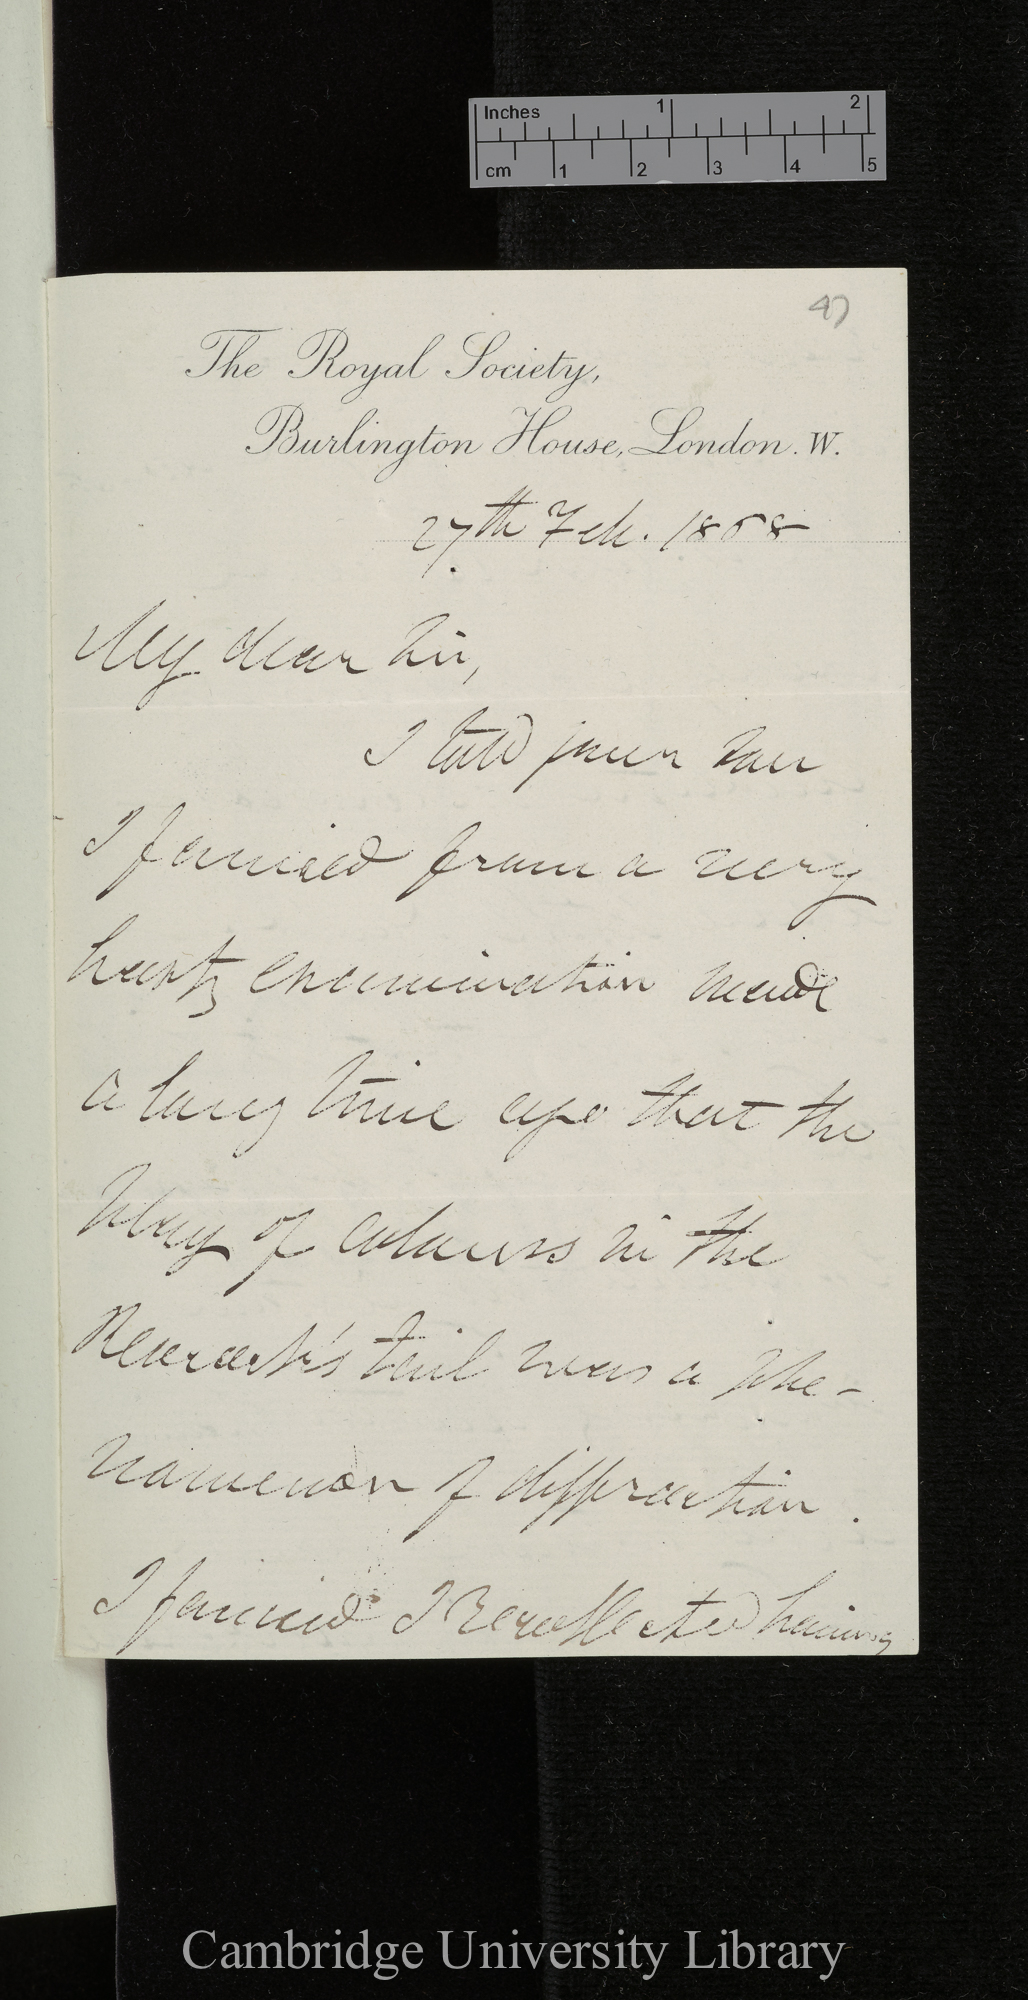 Inches 1 2
cm 1 2 3 4 5
47
The Royal Society,
Burlington House, London. W.
27th Feb. 1868
My dear Sir,
I told your son
I fancied from a very
hasty examination made
a long time ago that the
play of colours in the
Peacock's tail was a phe-
nomenon of diffraction.
I fancied I recollected having
Cambridge University Library